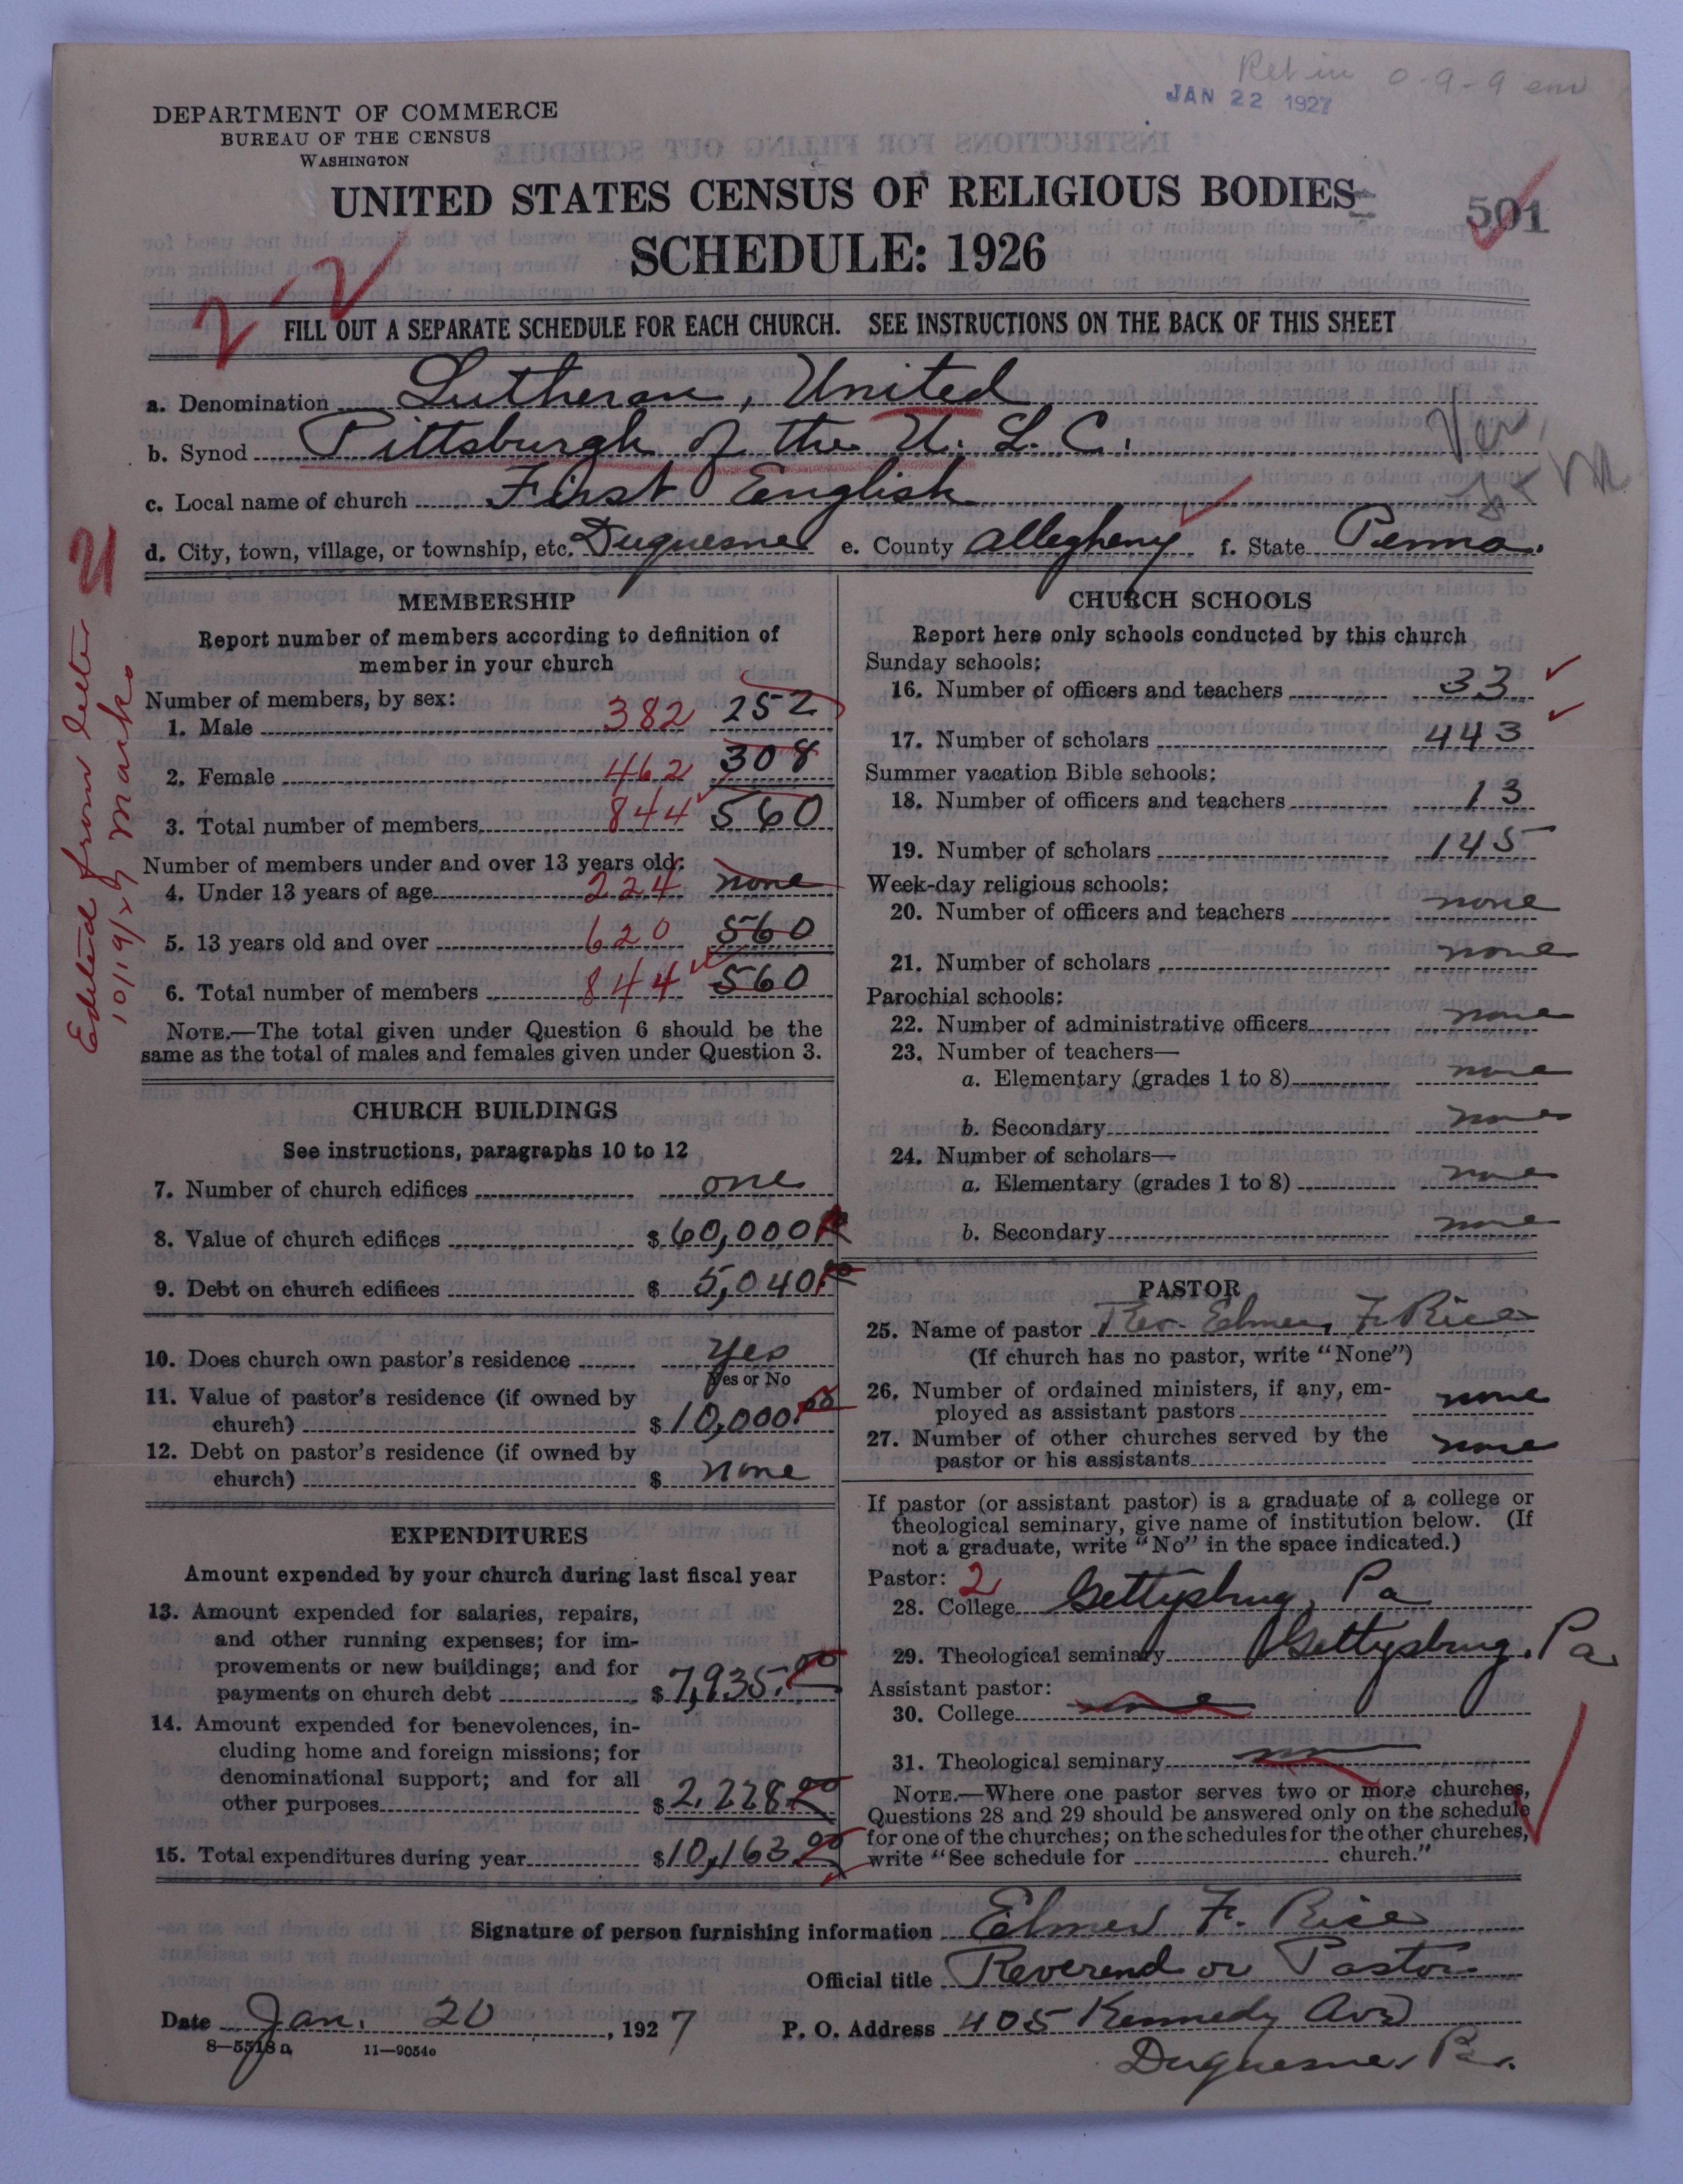 Ret in 0-9-9 env
JAN 22 1927
DEPARTMENT OF COMMERCE
BUREAU OF THE CENSUS
WASHINGTON
UNITED STATES CENSUS OF RELIGIOUS BODIES
501
SCHEDULE: 1926
2 2
FILL OUT A SEPARATE SCHEDULE FOR EACH CHURCH. SEE INSTRUCTIONS ON THE BACK OF THIS SHEET
a. Denomination Lutheran, United
b. Synod Pittsburgh of the U. L. C.
Ver.
c. Local name of church First English
d. City, town, village, or township, etc. Duquesne e. County Allegheny f. State Penna.
U
Edited from letter
10/19/27 Mark.
MEMBERSHIP
Report number of members according to definition of
member in your church
Number of members, by sex:
1. Male 382 252
2. Female 462 308
3. Total number of members 844 560
Number of members under and over 13 years old:
4. Under 13 years of age 224 none
5. 13 years old and over 620 560
6. Total number of members 844 560
NOTE.—The total given under Question 6 should be the
same as the total of males and females given under Question 3.
CHURCH BUILDINGS
See instructions, paragraphs 10 to 12
7. Number of church edifices one
8. Value of church edifices $ 60,000.00
9. Debt on church edifices $ 5,040.00
10. Does church own pastor's residence Yes
Yes or No
11. Value of pastor's residence (if owned by
church) $ 10,000.00
12. Debt on pastor's residence (if owned by
church) $ none
EXPENDITURES
Amount expended by your church during last fiscal year
13. Amount expended for salaries, repairs,
and other running expenses; for im-
provements or new buildings; and for
payments on church debt $ 7,935.00
14. Amount expended for benevolences, in-
cluding home and foreign missions; for
denominational support; and for all
other purposes $ 2,228.00
15. Total expenditures during year $ 10,163.00
CHURCH SCHOOLS
Report here only schools conducted by this church
Sunday schools:
16. Number of officers and teachers 33
17. Number of scholars 443
Summer vacation Bible schools:
18. Number of officers and teachers 13
19. Number of scholars 145
Week-day religious schools:
20. Number of officers and teachers none
21. Number of scholars none
Parochial schools:
22. Number of administrative officers none
23. Number of teachers—
a. Elementary (grades 1 to 8) none
b. Secondary none
24. Number of scholars—
a. Elementary (grades 1 to 8) none
b. Secondary none
PASTOR
25. Name of pastor Rev. Elmer F. Rice
(If church has no pastor, write "None")
26. Number of ordained ministers, if any, em-
ployed as assistant pastors none
27. Number of other churches served by the
pastor or his assistants none
If pastor (or assistant pastor) is a graduate of a college or
theological seminary, give name of institution below. (If
not a graduate, write "No" in the space indicated.)
Pastor: 2
28. College Gettysburg, Pa
29. Theological seminary Gettysburg, Pa.
Assistant pastor:
30. College none
31. Theological seminary
NOTE.—Where one pastor serves two or more churches,
Questions 28 and 29 should be answered only on the schedule
for one of the churches; on the schedules for the other churches,
write "See schedule for church."
Signature of person furnishing information Elmer F. Rice
Official title Reverend or Pastor
Date Jan. 20, 1927 P. O. Address 405 Kennedy Ave
8—5518a 11—9054c
Duquesne, Pa.